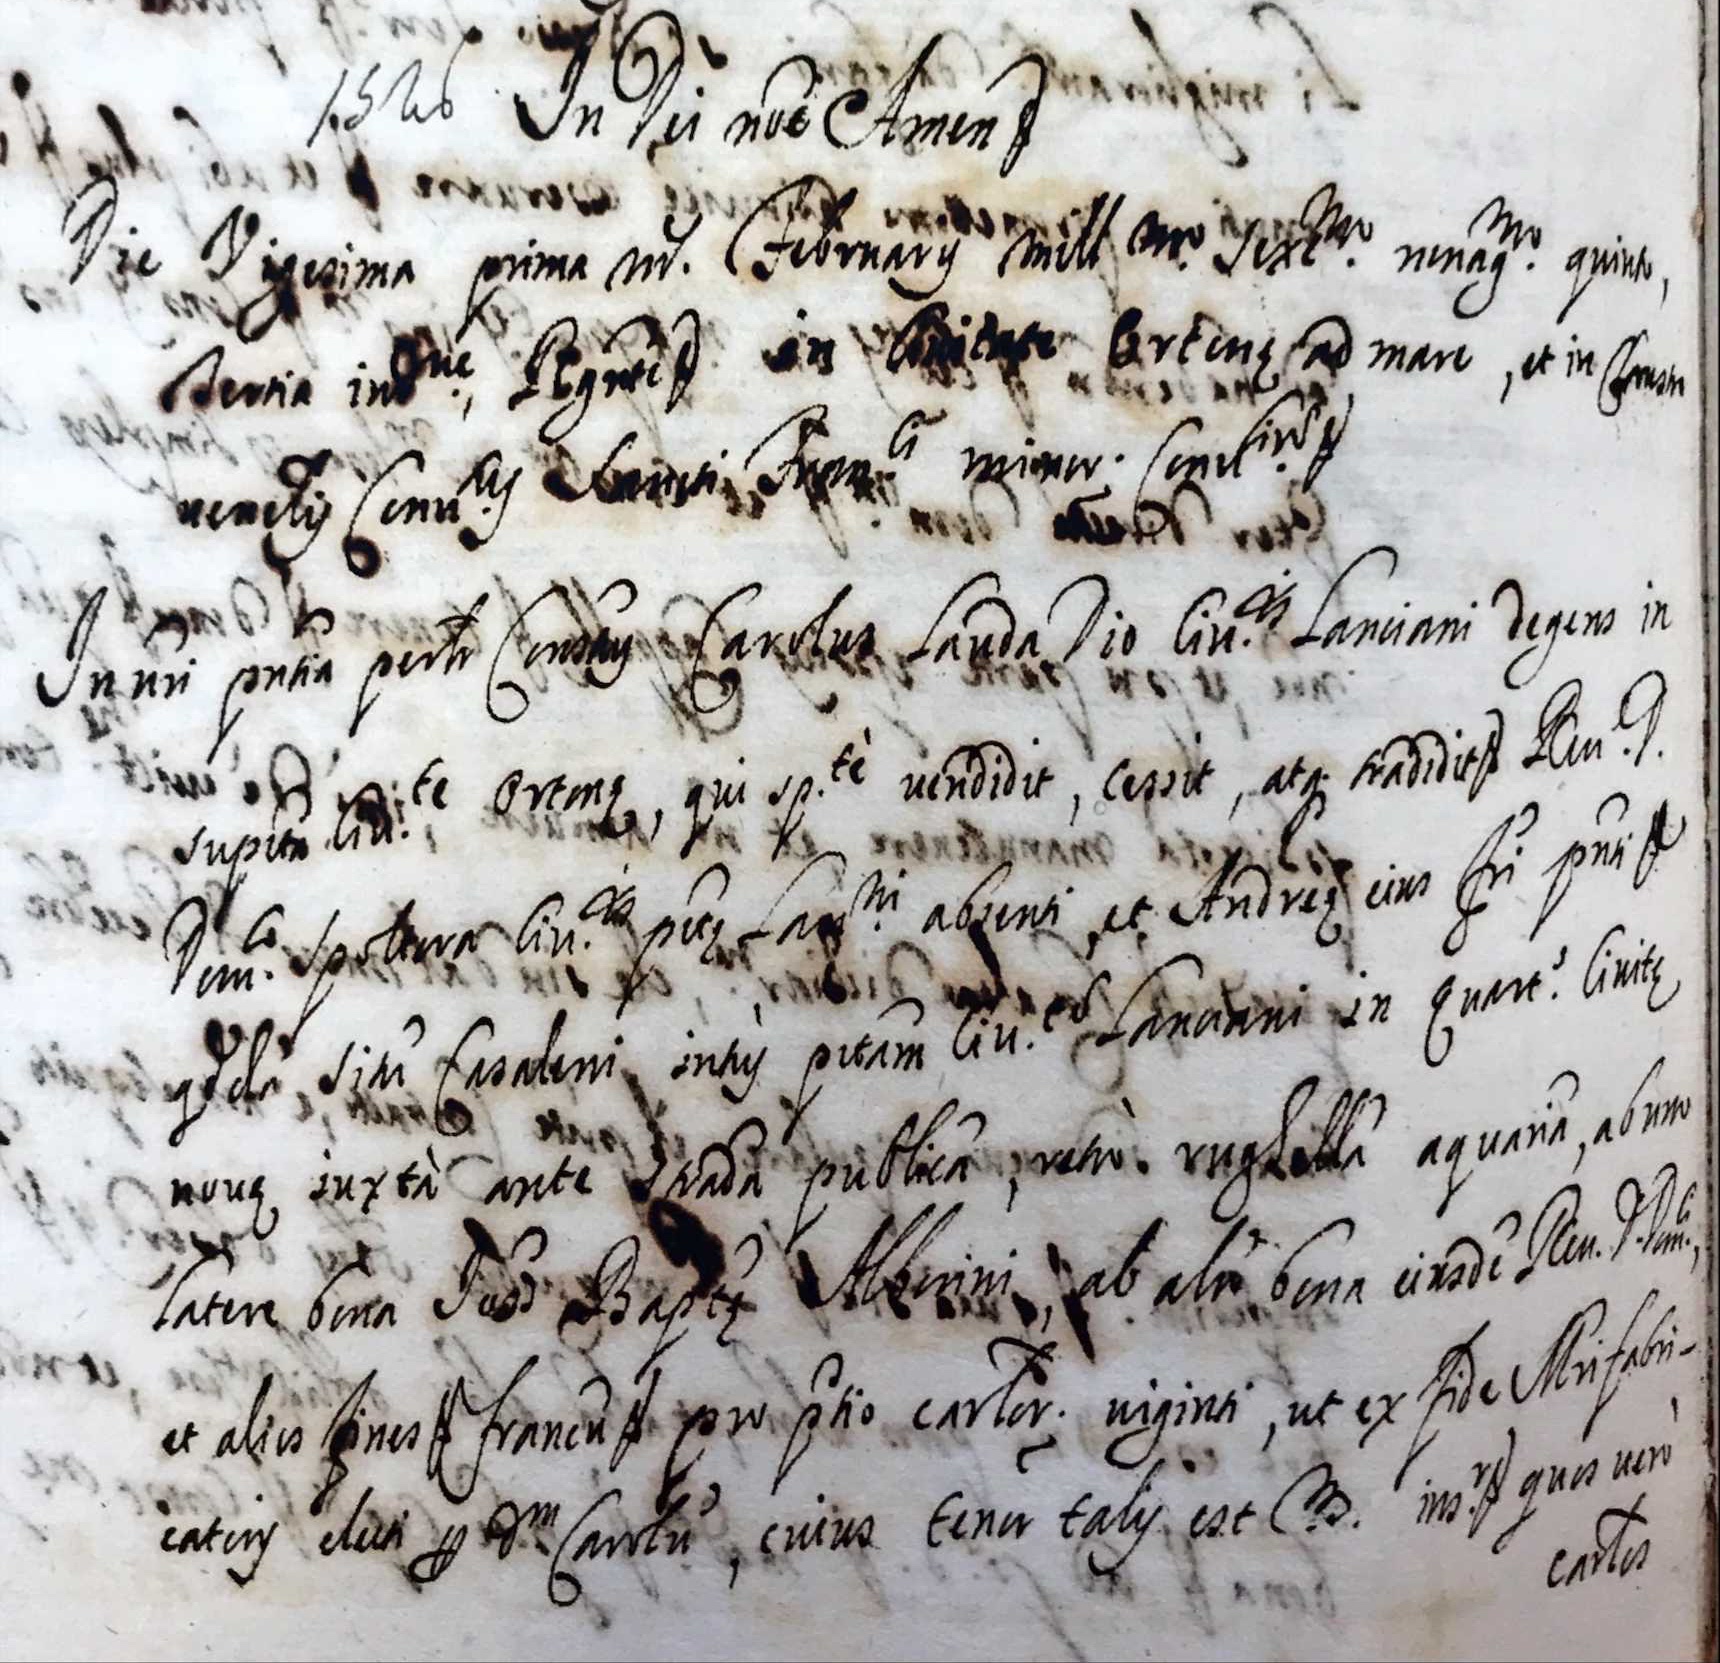 1526 In Dei noē Amen
Die Vigesima prima m. February mill.mo sexc.mo nonag.mo quinto,
tertia ind.ne, Regnte in Civitate Ortonę ad mare, et in
venelij Conu.tus Sancti Fran.ci minor. Conu
In nri pntia psonlr Constus Carolus Lauda Dio Ciu.tis Lanciani degens in
supta Ciu.te Ortonę, qui sp.te vendidit, cessit, atq tradidit Reu. D.
Dom.co Spoltora Ciu.tis ptę Lan.ni absenti, et Andreę eius fri pnti
qdda situ Casaleni intus ptam Ciu.tem Lanciani in Quart. Ciuitę
nouę iuxtà ante stradā publicā, retrò rughellā aquariā, ab uno
latere bona Baptę Alberini, ab alio bona eiusdē Reu. D. Dom.ci,
et alios fines francū pro ptio carlor. uiginti, ut ex fide Mri fabri-
catoris electi p dm Carolū, cuius tenor talis est Vz. ins.r quos uerò
carlos